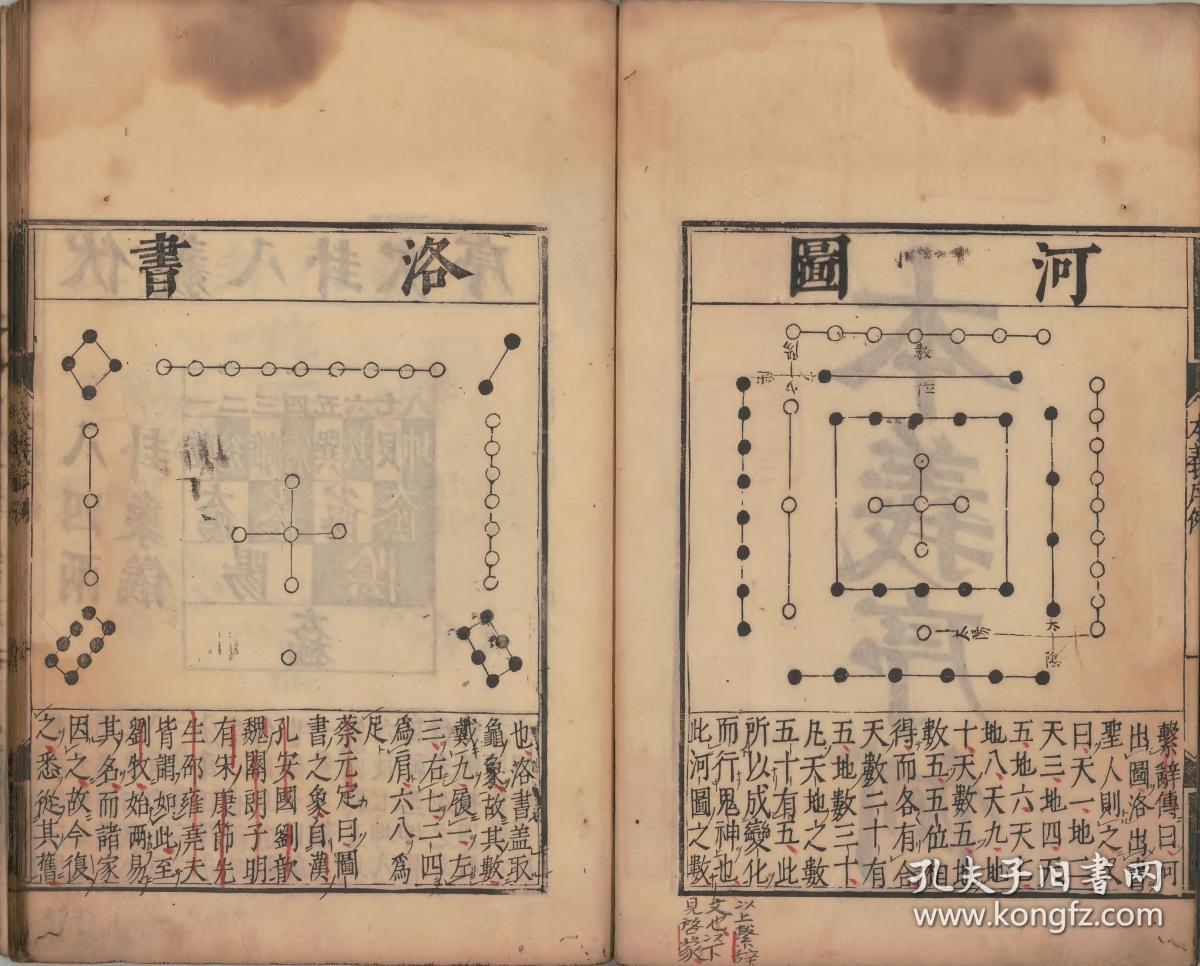 河圖
繫辭傳曰河
出圖洛出書
聖人則之又
曰天一地二
天三地四天
五地六天七
地八天九地
十天數五地
數五五位相
得而各有合
天數二十有
五地數三十
凡天地之數
五十有五此
所以成變化
而行鬼神也
此河圖之數
以上繫辭
文也以下
見啓蒙
數
位
太陽
太陰
洛書
也洛書蓋取
龜象故其數
戴九履一左
三右七二四
爲肩六八爲
足
蔡元定曰圖
書之象自漢
孔安國劉歆
魏關朗子明
有宋康節先
生邵雍堯夫
皆謂如此至
劉牧始兩易
其名而諸家
因之故今復
之悉從其舊
孔夫子旧書网
www.kongfz.com